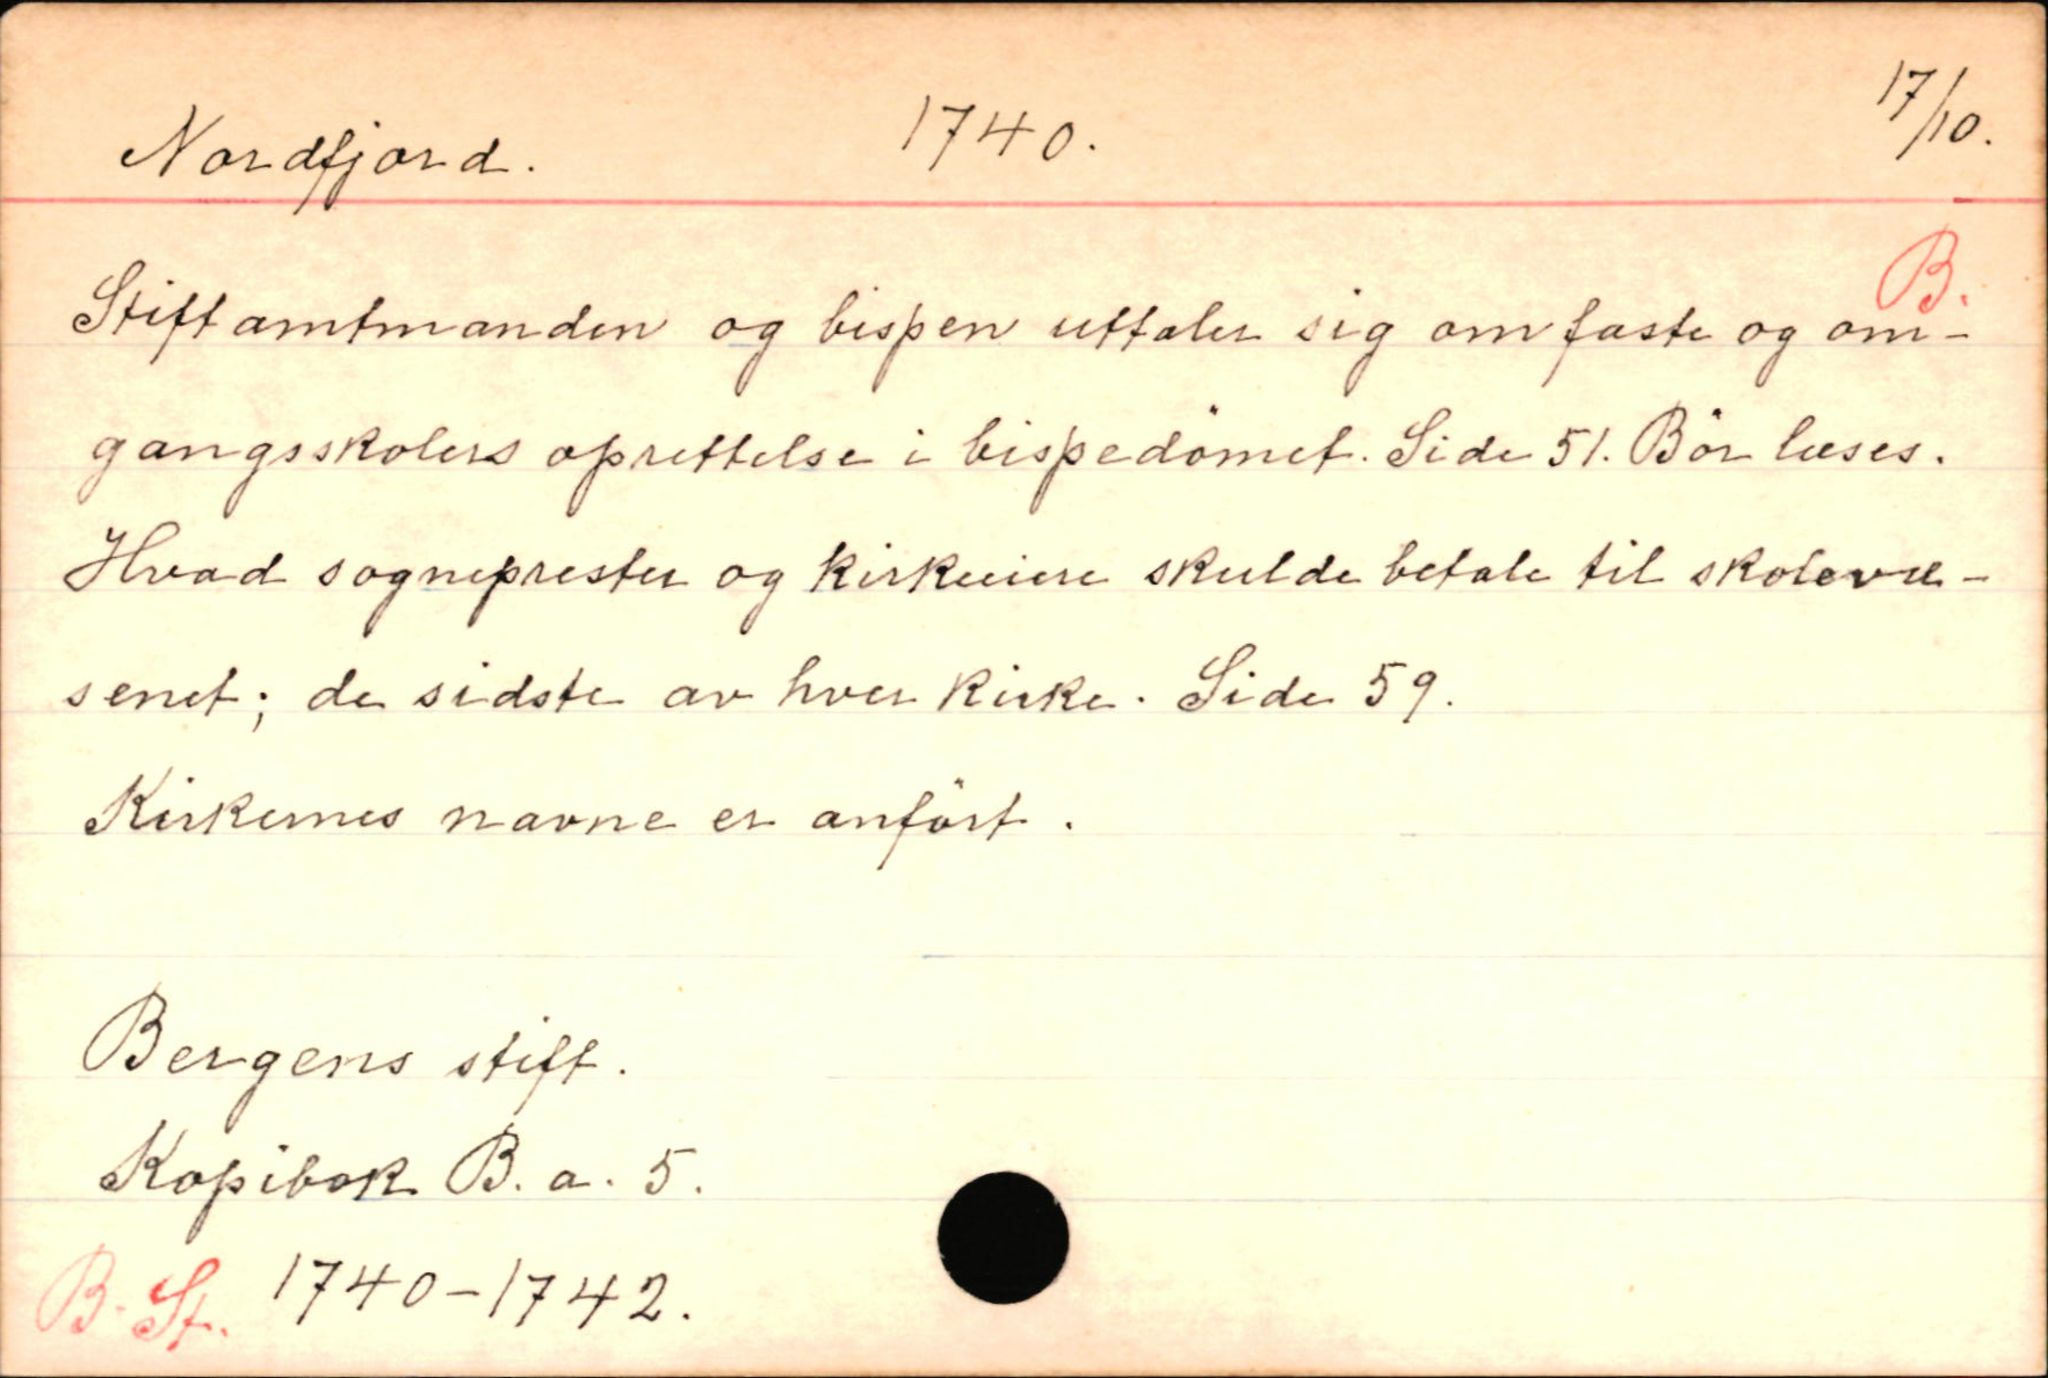 Nordfjord. 1740. 17/10.
B.
Stiftamtmanden og bispen uttaler sig om faste og om-
gangsskolers oprettelse i bispedömet. Side 51. Bör læses.
Hvad sogneprester og kirkeeiere skulde betale til skolevæ-
senet; de sidste av hver kirke. Side 59.
Kirkernes navne er anfört.
Bergens stift.
Kopibok B. a. 5.
B. St. 1740-1742.